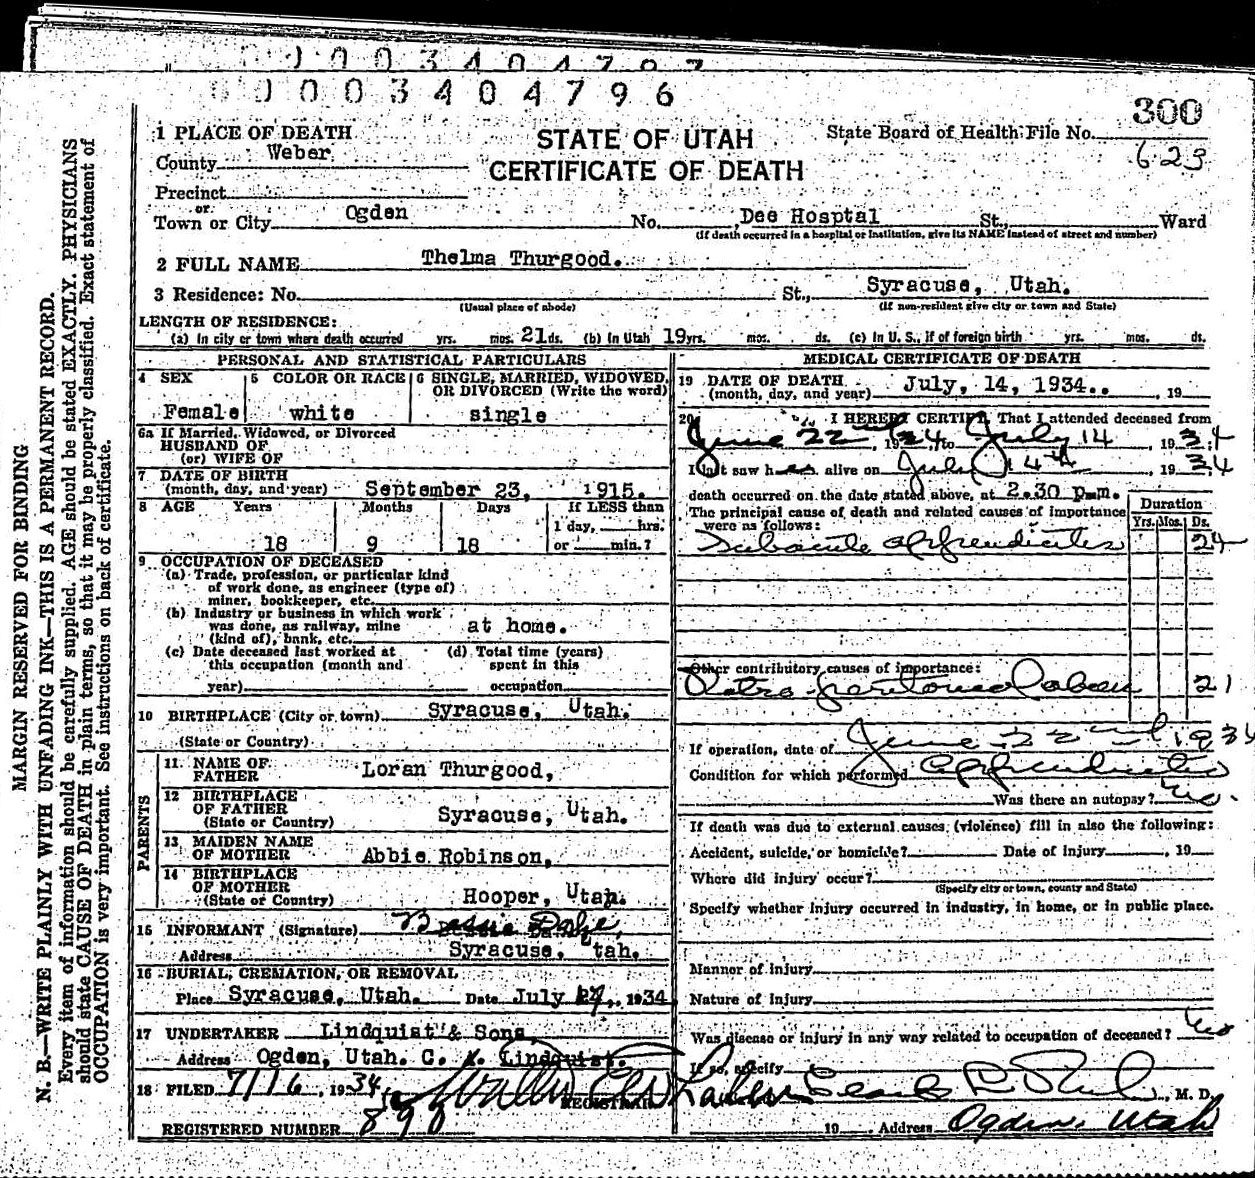 0003404796
300
1 PLACE OF DEATH
STATE OF UTAH
State Board of Health File No.
County Weber
CERTIFICATE OF DEATH
623
Precinct
or
Town or City Ogden No. Dee Hosptal St., Ward
(If death occurred in a hospital or institution, give its NAME instead of street and number)
2 FULL NAME Thelma Thurgood.
3 Residence: No. St., Syracuse, Utah.
(Usual place of abode) (If non-resident give city or town and State)
LENGTH OF RESIDENCE:
(a) In city or town where death occurred yrs. mos. 21 ds. (b) In Utah 19 yrs. mos. ds. (c) In U. S., if of foreign birth yrs. mos. ds.
PERSONAL AND STATISTICAL PARTICULARS
4 SEX 5 COLOR OR RACE 6 SINGLE, MARRIED, WIDOWED, OR DIVORCED (Write the word)
Female white single
6a If Married, Widowed, or Divorced
HUSBAND OF
(or) WIFE OF
7 DATE OF BIRTH
(month, day, and year) September 23, 1915.
8 AGE Years Months Days If LESS than
1 day, hrs.
18 9 18 or min.?
9 OCCUPATION OF DECEASED
(a) Trade, profession, or particular kind
of work done, as engineer (type of)
miner, bookkeeper, etc.
(b) Industry or business in which work
was done, as railway, mine at home.
(kind of), bank, etc.
(c) Date deceased last worked at (d) Total time (years)
this occupation (month and spent in this
year) occupation
10 BIRTHPLACE (City or town) Syracuse, Utah.
(State or Country)
PARENTS
11 NAME OF
FATHER Loran Thurgood,
12 BIRTHPLACE
OF FATHER
(State or Country) Syracuse, Utah.
13 MAIDEN NAME
OF MOTHER Abbie Robinson,
14 BIRTHPLACE
OF MOTHER
(State or Country) Hooper, Utah.
15 INFORMANT (Signature) Bessie
Address Syracuse, tah.
16 BURIAL, CREMATION, OR REMOVAL
Place Syracuse, Utah. Date July 17, 1934
17 UNDERTAKER Lindquist & Sons,
Address Ogden, Utah. C. Lindquist.
18 FILED 7/16, 1934
REGISTRAR
REGISTERED NUMBER 898
MEDICAL CERTIFICATE OF DEATH
19 DATE OF DEATH
(month, day, and year) July, 14, 1934. , 19
20 I HEREBY CERTIFY, That I attended deceased from
June 22nd, 1934, to July 14, 1934
I last saw her alive on July 14th, 1934
death occurred on the date stated above, at 2.30 p.m.
The principal cause of death and related causes of importance
were as follows:
Duration
Yrs. Mos. Ds.
Subacute appendicites 24
Other contributory causes of importance:
Retro-peritoneal 21
If operation, date of June 22nd 1934
Condition for which performed Appendicites
Was there an autopsy? no.
If death was due to external causes, (violence) fill in also the following:
Accident, suicide, or homicide? Date of injury , 19
Where did injury occur?
(Specify city or town, county and State)
Specify whether injury occurred in industry, in home, or in public place.
Manner of injury
Nature of injury
Was disease or injury in any way related to occupation of deceased? no
If so, specify
, M. D.
19 Address Ogden, Utah
MARGIN RESERVED FOR BINDING
N. B.—WRITE PLAINLY WITH UNFADING INK—THIS IS A PERMANENT RECORD.
Every item of information should be carefully supplied. AGE should be stated EXACTLY. PHYSICIANS
should state CAUSE OF DEATH in plain terms, so that it may be properly classified. Exact statement of
OCCUPATION is very important. See instructions on back of certificate.